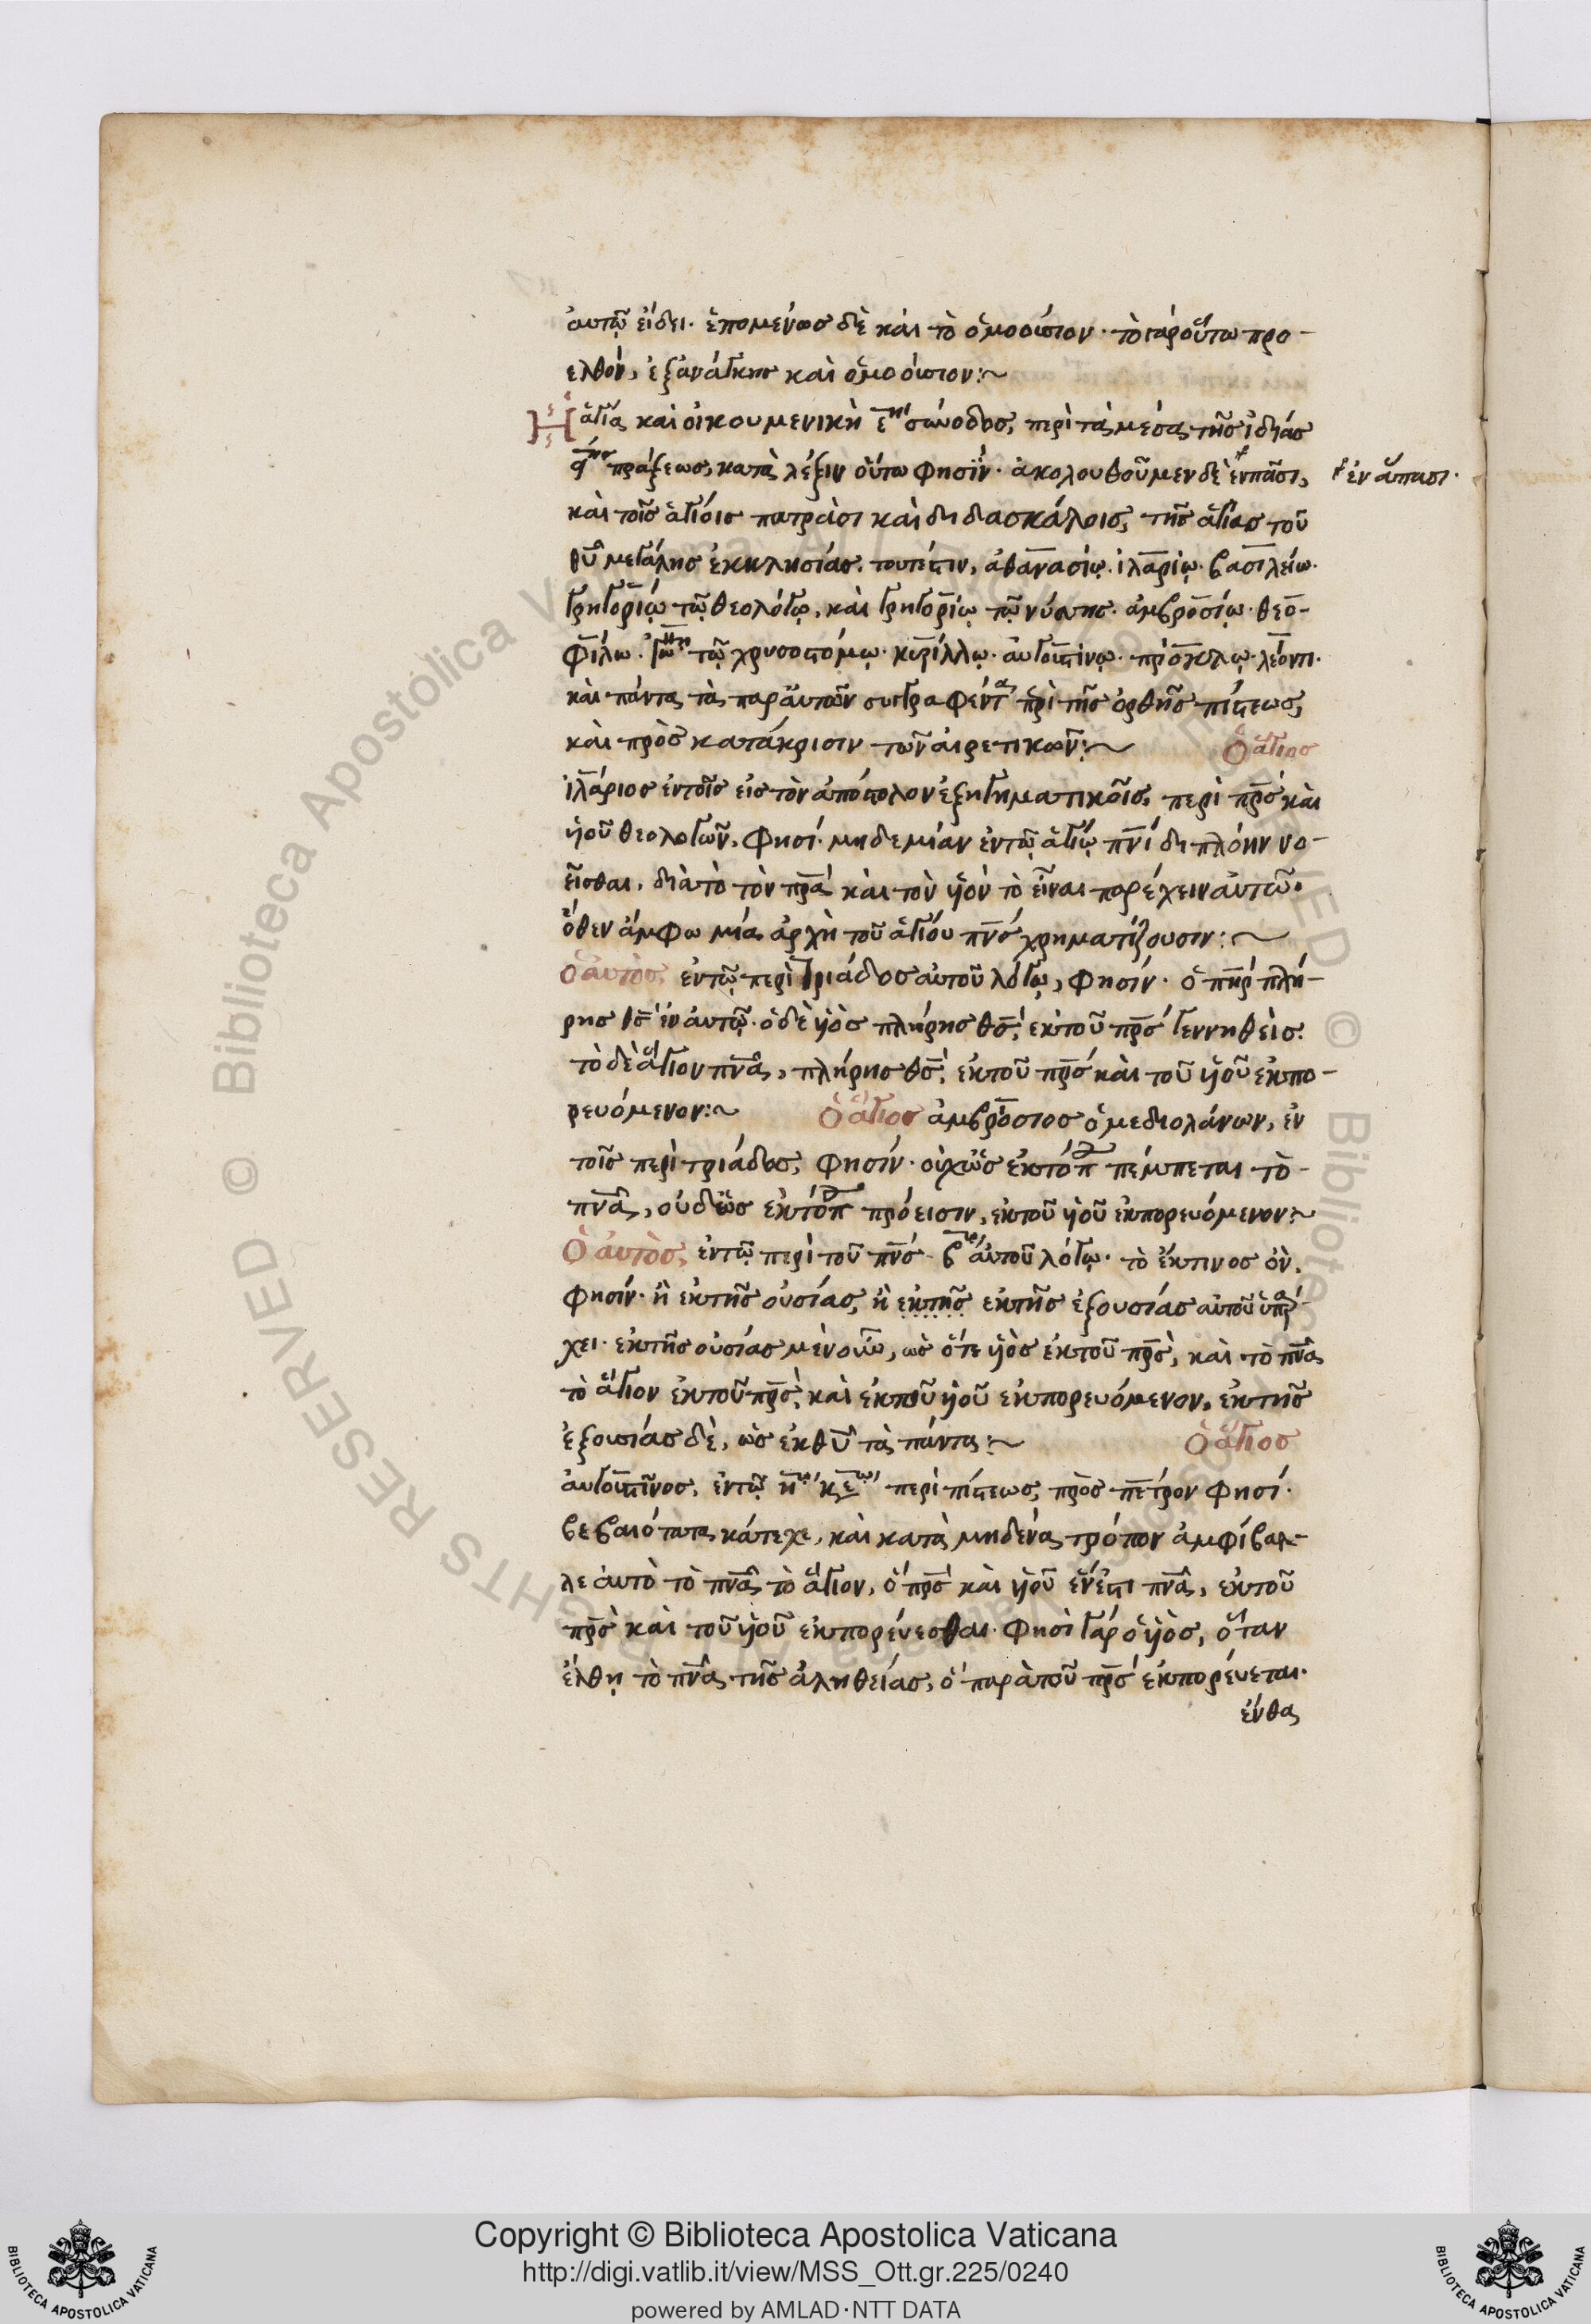 αυτῶ εἴδει· ἑπομένως δὲ καὶ τὸ ὁμοούσιον· τὸ γὰρ οὕτω προ-
ελθὸν, ἐξανάγκης καὶ ὁμοούσιον:~
Ἡ ἁγία καὶ οἰκουμενικὴ ε̅ⁿ σύνοδος, περὶ τὰ μέσα τῆς ἰδίας
πράξεως, κατὰ λέξιν οὕτω φησίν· ἀκολουθοῦμεν δὲ ἐν πᾶσι,
ἐν ἅπασι·
καὶ τοῖς ἁγίοις πατράσι καὶ διδασκάλοις, τῆς ἁγίας τοῦ
θῦ μεγάλης ἐκκλησίας. τουτέστιν, ἀθανασίῳ. ἱλαρίῳ. βασιλείω.
γρηγορίῳ τῷ θεολόγῳ, καὶ γρηγορίῳ τῷ νύσσης. ἀμβροσίῳ. θεο-
φίλω. ἰω τῷ χρυσοστόμῳ. κυρίλλῳ. αυγουστίνῳ. πρόκλῳ. λέοντι.
καὶ πάντα τὰ παρ᾽ αὐτῶν συγγραφέντα περὶ τῆς ὀρθῆς πίστεως,
καὶ πρὸς κατάκρισιν τῶν αἱρετικῶν:~ Ὁ ἅγιος
ἱλάριος ἐν τοῖς εἰς τὸν ἀπόστολον ἐξηγηματικοῖς, περὶ πρ̅ς καὶ
ὑοῦ θεολογῶν, φησί. μηδεμίαν ἐν τῷ ἁγίῳ πν̅ι διπλόην νο-
εῖσθαι, διὰ τὸ τὸν πρ̅α καὶ τὸν ὑὸν τὸ εἶναι παρέχειν αὐτῶ.
ὅθεν ἄμφω μία ἀρχὴ τοῦ ἁγίου πν̅ς χρηματίζουσιν:~
ὁ αὐτὸς, ἐν τῷ περὶ τριάδος αὐτοῦ λόγῳ, φησίν. ὁ πη̅ρ πλή-
ρης θς̅ ἐν αυτῷ. ὁ δὲ ὑὸς πλήρης θς̅, ἐκ τοῦ πρ̅ς γεννηθείς.
τὸ δὲ ἅγιον πν̅α, πλήρης θς̅, ἐκ τοῦ πρ̅ς καὶ τοῦ ὑοῦ ἐκπο-
ρευόμενον:~ Ὁ ἅγιος ἀμβρόσιος ὁ μεδιολάνων, ἐν
τοῖς περὶ τριάδος, φησίν. οὐχ ὡς ἐκ τόπ πέμπεται τὸ
πν̅α, οὐδ᾽ ὡς ἐκ τόπ πρόεισιν, ἐκ τοῦ ὑοῦ ἐκπορευόμενον:~
Ὁ αὐτὸς, ἐν τῷ περὶ τοῦ πν̅ς β̅ αὐτοῦ λόγῳ. τὸ ἔκ τινος ὂν,
φησίν. ἢ ἐκ τῆς οὐσίας, ἢ ἐκ τῆς ἐκ τῆς ἐξουσίας αὐτοῦ ὑπάρ-
χει. ἐκ τῆς οὐσίας μὲν οὖν, ὡς ὅτε ὑὸς ἐκ τοῦ πρ̅ς, καὶ τὸ πν̅α
τὸ ἅγιον ἐκ τοῦ πρ̅ς, καὶ ἐκ τοῦ ὑοῦ ἐκπορευόμενον. ἐκ τῆς
ἐξουσίας δὲ, ὡς ἐκ θῦ τὰ πάντα:~ Ὁ ἅγιος
αυγουστῖνος, ἐν τῷ περὶ πίστεως, πρὸς πέτρον φησί.
βεβαιότατα κάτεχε, καὶ κατὰ μηδένα τρόπον ἀμφίβαλ-
λε αὐτὸ τὸ πν̅α τὸ ἅγιον, ὃ πρ̅ς καὶ ὑοῦ ἕν ἐστι πν̅α, ἐκ τοῦ
πρ̅ς καὶ τοῦ ὑοῦ ἐκπορεύεσθαι. φησὶ γὰρ ὁ ὑὸς, ὅταν
ἔλθῃ τὸ πν̅α τῆς ἀληθείας, ὃ παρὰ τοῦ πρ̅ς ἐκπορεύεται.
ἔνθα
Copyright © Biblioteca Apostolica Vaticana
http://digi.vatlib.it/view/MSS_Ott.gr.225/0240
powered by AMLAD·NTT DATA